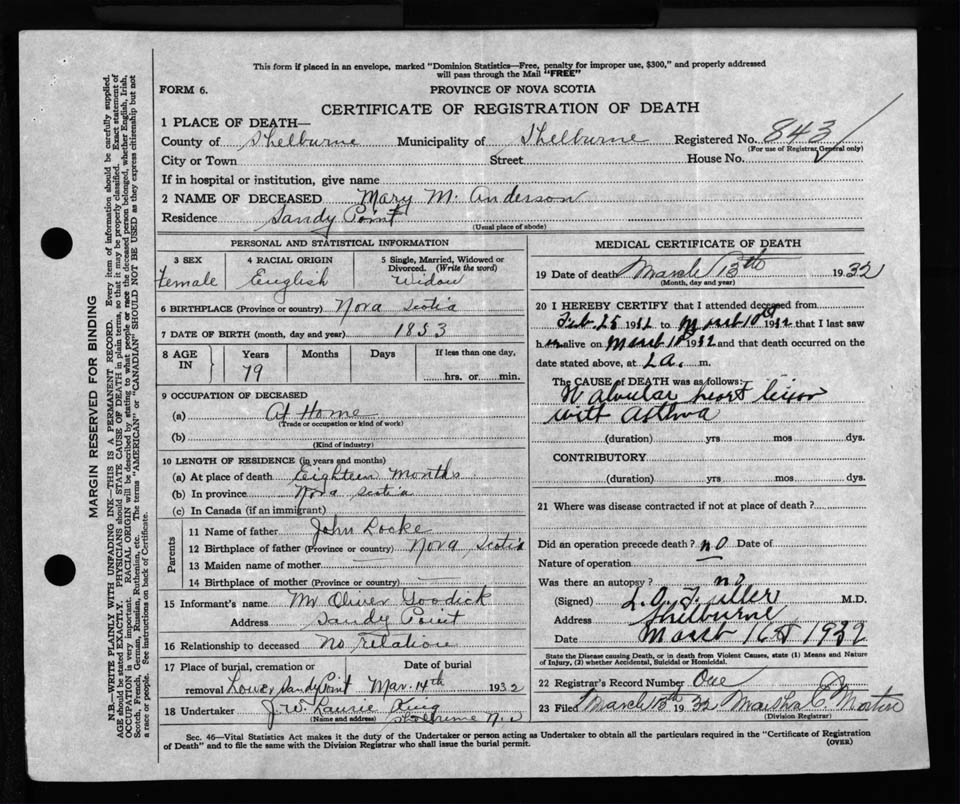 This form if placed in an envelope, marked "Dominion Statistics—Free, penalty for improper use, $300," and properly addressed
will pass through the Mail "FREE"
FORM 6.
PROVINCE OF NOVA SCOTIA
CERTIFICATE OF REGISTRATION OF DEATH
1 PLACE OF DEATH—
County of Shelburne Municipality of Shelburne Registered No. 843
(For use of Registrar General only)
City or Town Street House No.
If in hospital or institution, give name
2 NAME OF DECEASED Mary M. Anderson
Residence Sandy Point
(Usual place of abode)
PERSONAL AND STATISTICAL INFORMATION
3 SEX 4 RACIAL ORIGIN 5 Single, Married, Widowed or
Divorced. (Write the word)
Female English Widow
6 BIRTHPLACE (Province or country) Nova Scotia
7 DATE OF BIRTH (month, day and year) 1853
8 AGE IN Years Months Days If less than one day,
79 hrs. or min.
9 OCCUPATION OF DECEASED
(a) At Home
(Trade or occupation or kind of work)
(b)
(Kind of industry)
10 LENGTH OF RESIDENCE (in years and months)
(a) At place of death Eighteen Months
(b) In province Nova Scotia
(c) In Canada (if an immigrant)
Parents
11 Name of father John Locke
12 Birthplace of father (Province or country) Nova Scotia
13 Maiden name of mother —
14 Birthplace of mother (Province or country) —
15 Informant's name Mr Oliver Goodick
Address Sandy Point
16 Relationship to deceased No relation
17 Place of burial, cremation or Date of burial
removal Lower Sandy Point Mar. 14th 1932
18 Undertaker J. W. King
(Name and address) Shelburne N.S
MEDICAL CERTIFICATE OF DEATH
19 Date of death March 13th 1932
(Month, day and year)
20 I HEREBY CERTIFY that I attended deceased from
Feb. 25 1932 to March 10th 1932 that I last saw
h er alive on March 10 1932 and that death occurred on the
date stated above, at m.
The CAUSE of DEATH was as follows:
Valvular heart lesion
with asthma
(duration) yrs mos dys.
CONTRIBUTORY
(duration) yrs. mos. dys.
21 Where was disease contracted if not at place of death?
Did an operation precede death? no Date of
Nature of operation —
Was there an autopsy? no
(Signed) L. O. Fuller M.D.
Address Shelburne
Date March 16th 1932
State the Disease causing Death, or in death from Violent Causes, state (1) Means and Nature
of Injury, (2) whether Accidental, Suicidal or Homicidal.
22 Registrar's Record Number One
23 Filed March 13th 1932 Martin
(Division Registrar)
Sec. 46—Vital Statistics Act makes it the duty of the Undertaker or person acting as Undertaker to obtain all the particulars required in the "Certificate of Registration
of Death" and to file the same with the Division Registrar who shall issue the burial permit.
(OVER)
MARGIN RESERVED FOR BINDING
N.B.—WRITE PLAINLY WITH UNFADING INK—THIS IS A PERMANENT RECORD. Every item of information should be carefully supplied.
AGE should be stated EXACTLY. PHYSICIANS should STATE CAUSE OF DEATH in plain terms, so that it may be properly classified. Exact statement of
OCCUPATION is very important. RACIAL ORIGIN will be described by stating to what people or race the deceased person belonged, whether English, Irish,
Scotch, French, German, Russian, Ruthenian, etc. The terms "AMERICAN" or "CANADIAN" SHOULD NOT BE USED as they express citizenship but not
a race or people. See instructions on back of Certificate.